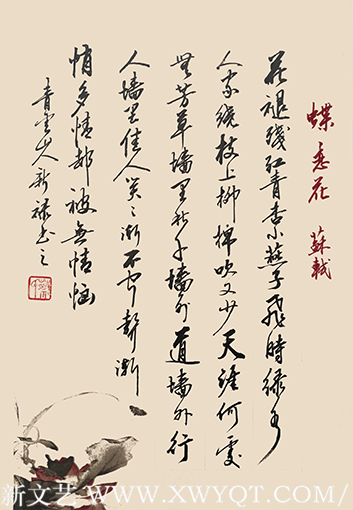 蝶恋花 蘇軾
花褪残红青杏小燕子飛時绿水
人家绕枝上柳棉吹又少天涯何處
無芳草墙里秋千墙外道墙外行
人墙里佳人笑〻渐不闻聲渐
悄多情却被無情惱
青雲山人新禄书之
新文艺-WWW.XWYQT.COM